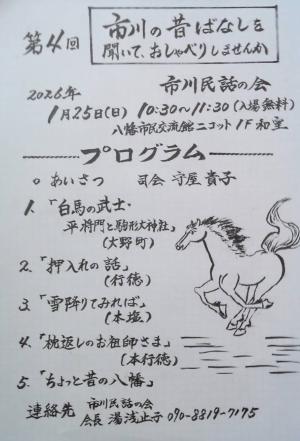 第4回
市川の昔ばなしを
聞いて、おしゃべりしませんか
市川民話の会
2026年
1月25日(日) 10:30〜11:30(入場無料)
八幡市民交流館ニコット 1F 和室
プログラム
○ あいさつ 司会 守屋 貴子
1. 「白馬の武士・
平将門と駒形大神社」
(大野町)
2. 「押入れの話」
(行徳)
3. 「雪降りてみれば」
(本塩)
4. 「枕返しのお祖師さま」
(本行徳)
5. 「ちょっと昔の八幡」
連絡先 市川民話の会
会長 湯浅止子 090-8819-7175